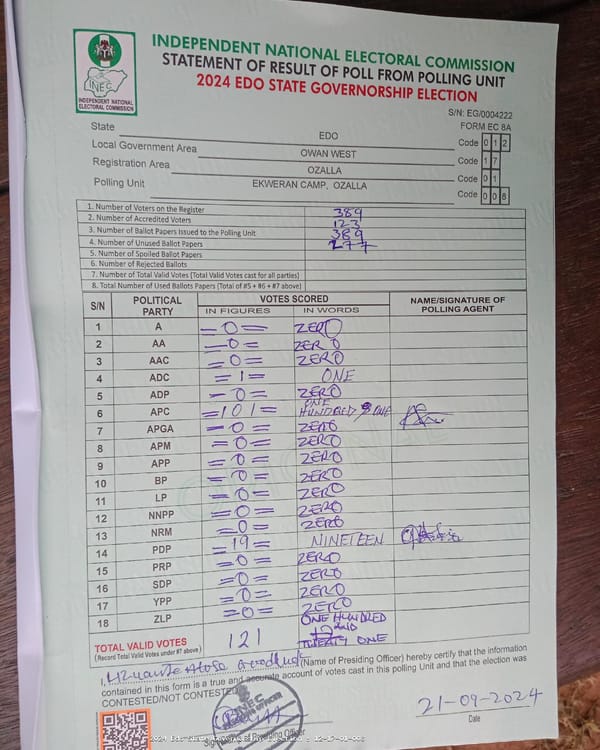 INDEPENDENT NATIONAL ELECTORAL COMMISSION
STATEMENT OF RESULT OF POLL FROM POLLING UNIT
2024 EDO STATE GOVERNORSHIP ELECTION
INEC
INDEPENDENT NATIONAL
ELECTORAL COMMISSION
S/N: EG/0004222
FORM EC 8A
State EDO Code 0 1 2
Local Government Area OWAN WEST Code 1 7
Registration Area OZALLA Code 0 1
Polling Unit EKWERAN CAMP, OZALLA Code 0 0 8
1. Number of Voters on the Register 389
2. Number of Accredited Voters 123
3. Number of Ballot Papers Issued to the Polling Unit 389
4. Number of Unused Ballot Papers 277
5. Number of Spoiled Ballot Papers
6. Number of Rejected Ballots
7. Number of Total Valid Votes (Total Valid Votes cast for all parties)
8. Total Number of Used Ballots Papers (Total of #5 + #6 + #7 above)
S/N POLITICAL PARTY VOTES SCORED NAME/SIGNATURE OF POLLING AGENT
IN FIGURES IN WORDS
1 A =0= ZERO
2 AA =0= ZERO
3 AAC =0= ZERO
4 ADC =1= ONE
5 ADP =0= ZERO
6 APC =101= ONE HUNDRED & ONE
7 APGA =0= ZERO
8 APM =0= ZERO
9 APP =0= ZERO
10 BP =0= ZERO
11 LP =0= ZERO
12 NNPP =0= ZERO
13 NRM =0= ZERO
14 PDP =19= NINETEEN
15 PRP =0= ZERO
16 SDP =0= ZERO
17 YPP =0= ZERO
18 ZLP =0= ZERO
TOTAL VALID VOTES 121 ONE HUNDRED AND TWENTY ONE
(Record Total Valid Votes under #7 above)
I, (Name of Presiding Officer) hereby certify that the information
contained in this form is a true and accurate account of votes cast in this polling Unit and that the election was
CONTESTED/NOT CONTESTED
INEC
21-09-2024
Date